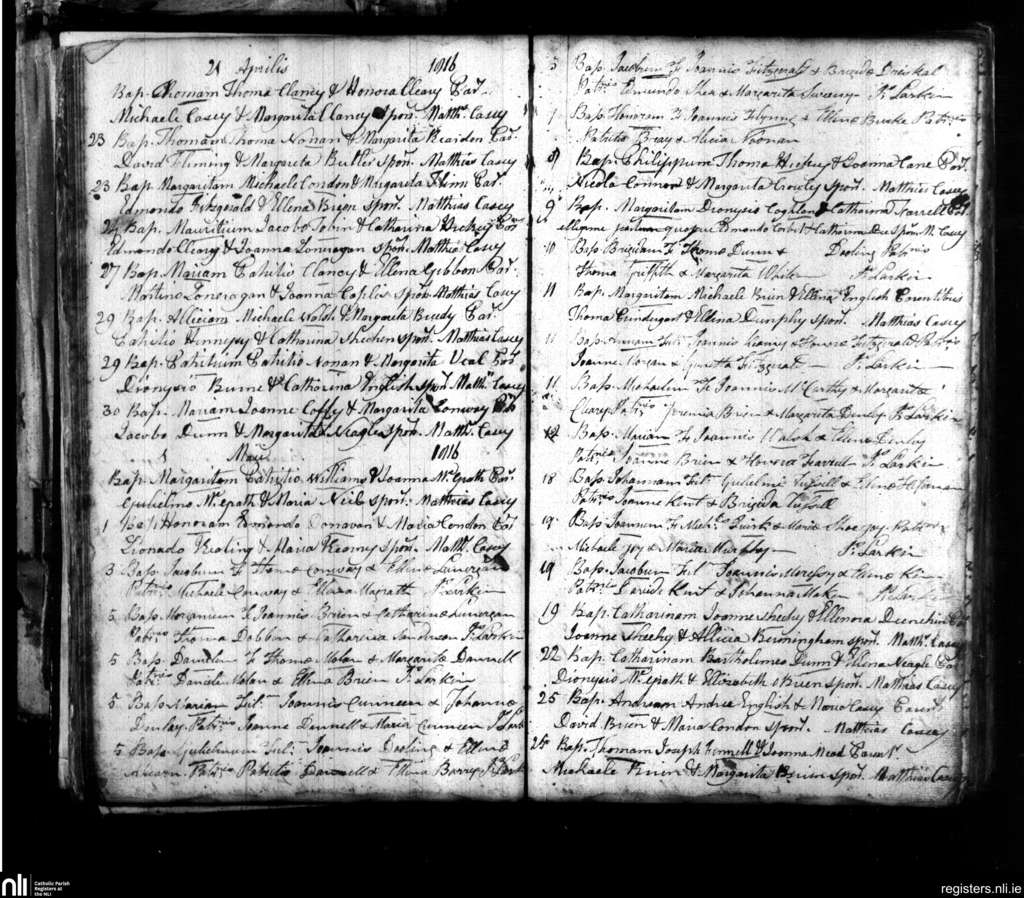 21 Aprilis 1816
Bap. Thomam Thoma Clancy & Honora Cleary Par.
Michaele Casey & Margarita Clancy Spon. Matth. Casey
23 Bap. Thomam Thoma Nonan & Margarita Reardon Par.
David Fleming & Margareta Butler Spon. Matthias Casey
23 Bap. Margaritam Michaele Condon & Margarita Flinn Par.
Edmondo Fitzgerald & Ellena Brien Spon. Matthias Casey
24 Bap. Mauritium Jacobo Tobin & Catharina Hickey Par
Edmondo Cleary & Joanna Lonragan Spon. Matthias Casey
27 Bap. Mariam Cahilio Clancy & Ellena Gibbon Par.
Martino Loneragan & Joanna Caplis Spon. Matthias Casey
29 Bap. Alliciam Michaele Walsh & Margareta Par.
Cahilio Hennessy & Catharina Sheehen Spon. Matthias Casey
29 Bap. Cahilium Cahilio Nonan & Margarita Par.
Dionysio Burne & Catharina English Spon. Matth. Casey
30 Bap. Mariam Joanne Coffy & Margarita Conway Par.
Jacobo Dunn & Margarita Neagle Spon. Matth. Casey
1 Maii 1816
Bap. Margaritam Cahilio Williams & Joanna McGrath Par.
Gulielmo McGrath & Maria Neile Spon. Matthias Casey
1 Bap. Honoram Edmondo Donavan & Maria Condon Par
Lionado Keating & Maria Kearny Spon. Matth. Casey
3 Bap. Jacobum F. Thomæ Conway & Ellenæ Lonergan
Patrinis Michaele Conway & Ellena Magrath P. Larkin
5 Bap. Honoram F. Joannis Brien & Catharinæ Lonergan
Patrinis Thoma & Catharina P. Larkin
5 Bap. Danielem F. Thomæ Nolan & Margaritæ Darrell
Patris. Daniele Nolan & Ellena Brien P. Larkin
5 Bap. Mariam Fil. Joannis Cunneen & Johannæ
Patrinis Joanne & Maria Cunneen P. Lark
5 Bap. Gulielmum Fil. Joannis Dooling & Ellenæ
Patrinis Patritio & Ellena Barry P. Lark
5 Bap. Jacobum F. Joannis Fitzgerald & Brigidæ Driskal
Patrinis Edmundo Shea & Margarita Sweeny P. Larkin
7 Bap. Honoram F. Joannis Flynn & Ellenæ Burke Patrinis
Patritio Bray & Alicia Noonan
8 Bap. Philippum Thoma Hickey & Joanna Cane Par.
Nicola Connor & Margarita Crowly Spon. Matthias Casey
9 Bap. Margaritam Dionysio Coghlan & Catharina Farrell
Edmondo Corbet & Catharina Spon. M. Casey
10 Bap. Brigidam F. Thomæ Dunn & Dooling Patrinis
Thoma Griffith & Margarita White P. Larkin
11 Bap. Margaritam Michaele Brien & Ellena English Parentibus
Thoma & Ellena Dunphy Spon. Matthias Casey
11 Bap. Annam Fil. Joannis & Honoræ Fitzgerald Patrinis
Joanne & P. Larkin
11 Bap. Michaelem F. Joannis McCarthy & Margaritæ
Cleary Patrinis Jeremia Brien & Margarita P. Larkin
12 Bap. Mariam F. Joannis Walsh & Ellenæ
Patrinis Joanne Brien & Honora Farrell P. Larkin
18 Bap. Johannam Fil. Gulielmi & Ellenæ
Patrinis Joanne Kent & Brigida
19 Bap. Joannem F. Mich. Quirk & Mariæ Shea Patrinis
Michaele Joy & Maria Murphy P. Larkin
19 Bap. Jacobum Fil. Joannis & Ellenæ
Patrinis David Kent & Johanna P. Larkin
19 Bap. Catharinam Joanne Sheehy & Ellenora
Joanne Sheehy & Allicia Birmingham Spon. Matth. Casey
22 Bap. Catharinam Bartholomeo Dunn & Ellena Neagle Par
Dionysio McGrath & Elizabeth Brien Spon. Matthias Casey
25 Bap. Andream Andrea English & Nora Casey Parent.
David Brien & Maria Condon Spon. Matthias Casey
25 Bap. Thomam Joseph Fennell & Joanna Mead Parent.
Michaele Brien & Margarita Brien Spon. Matthias Casey
nli
Catholic Parish
Registers at
the NLI
registers.nli.ie